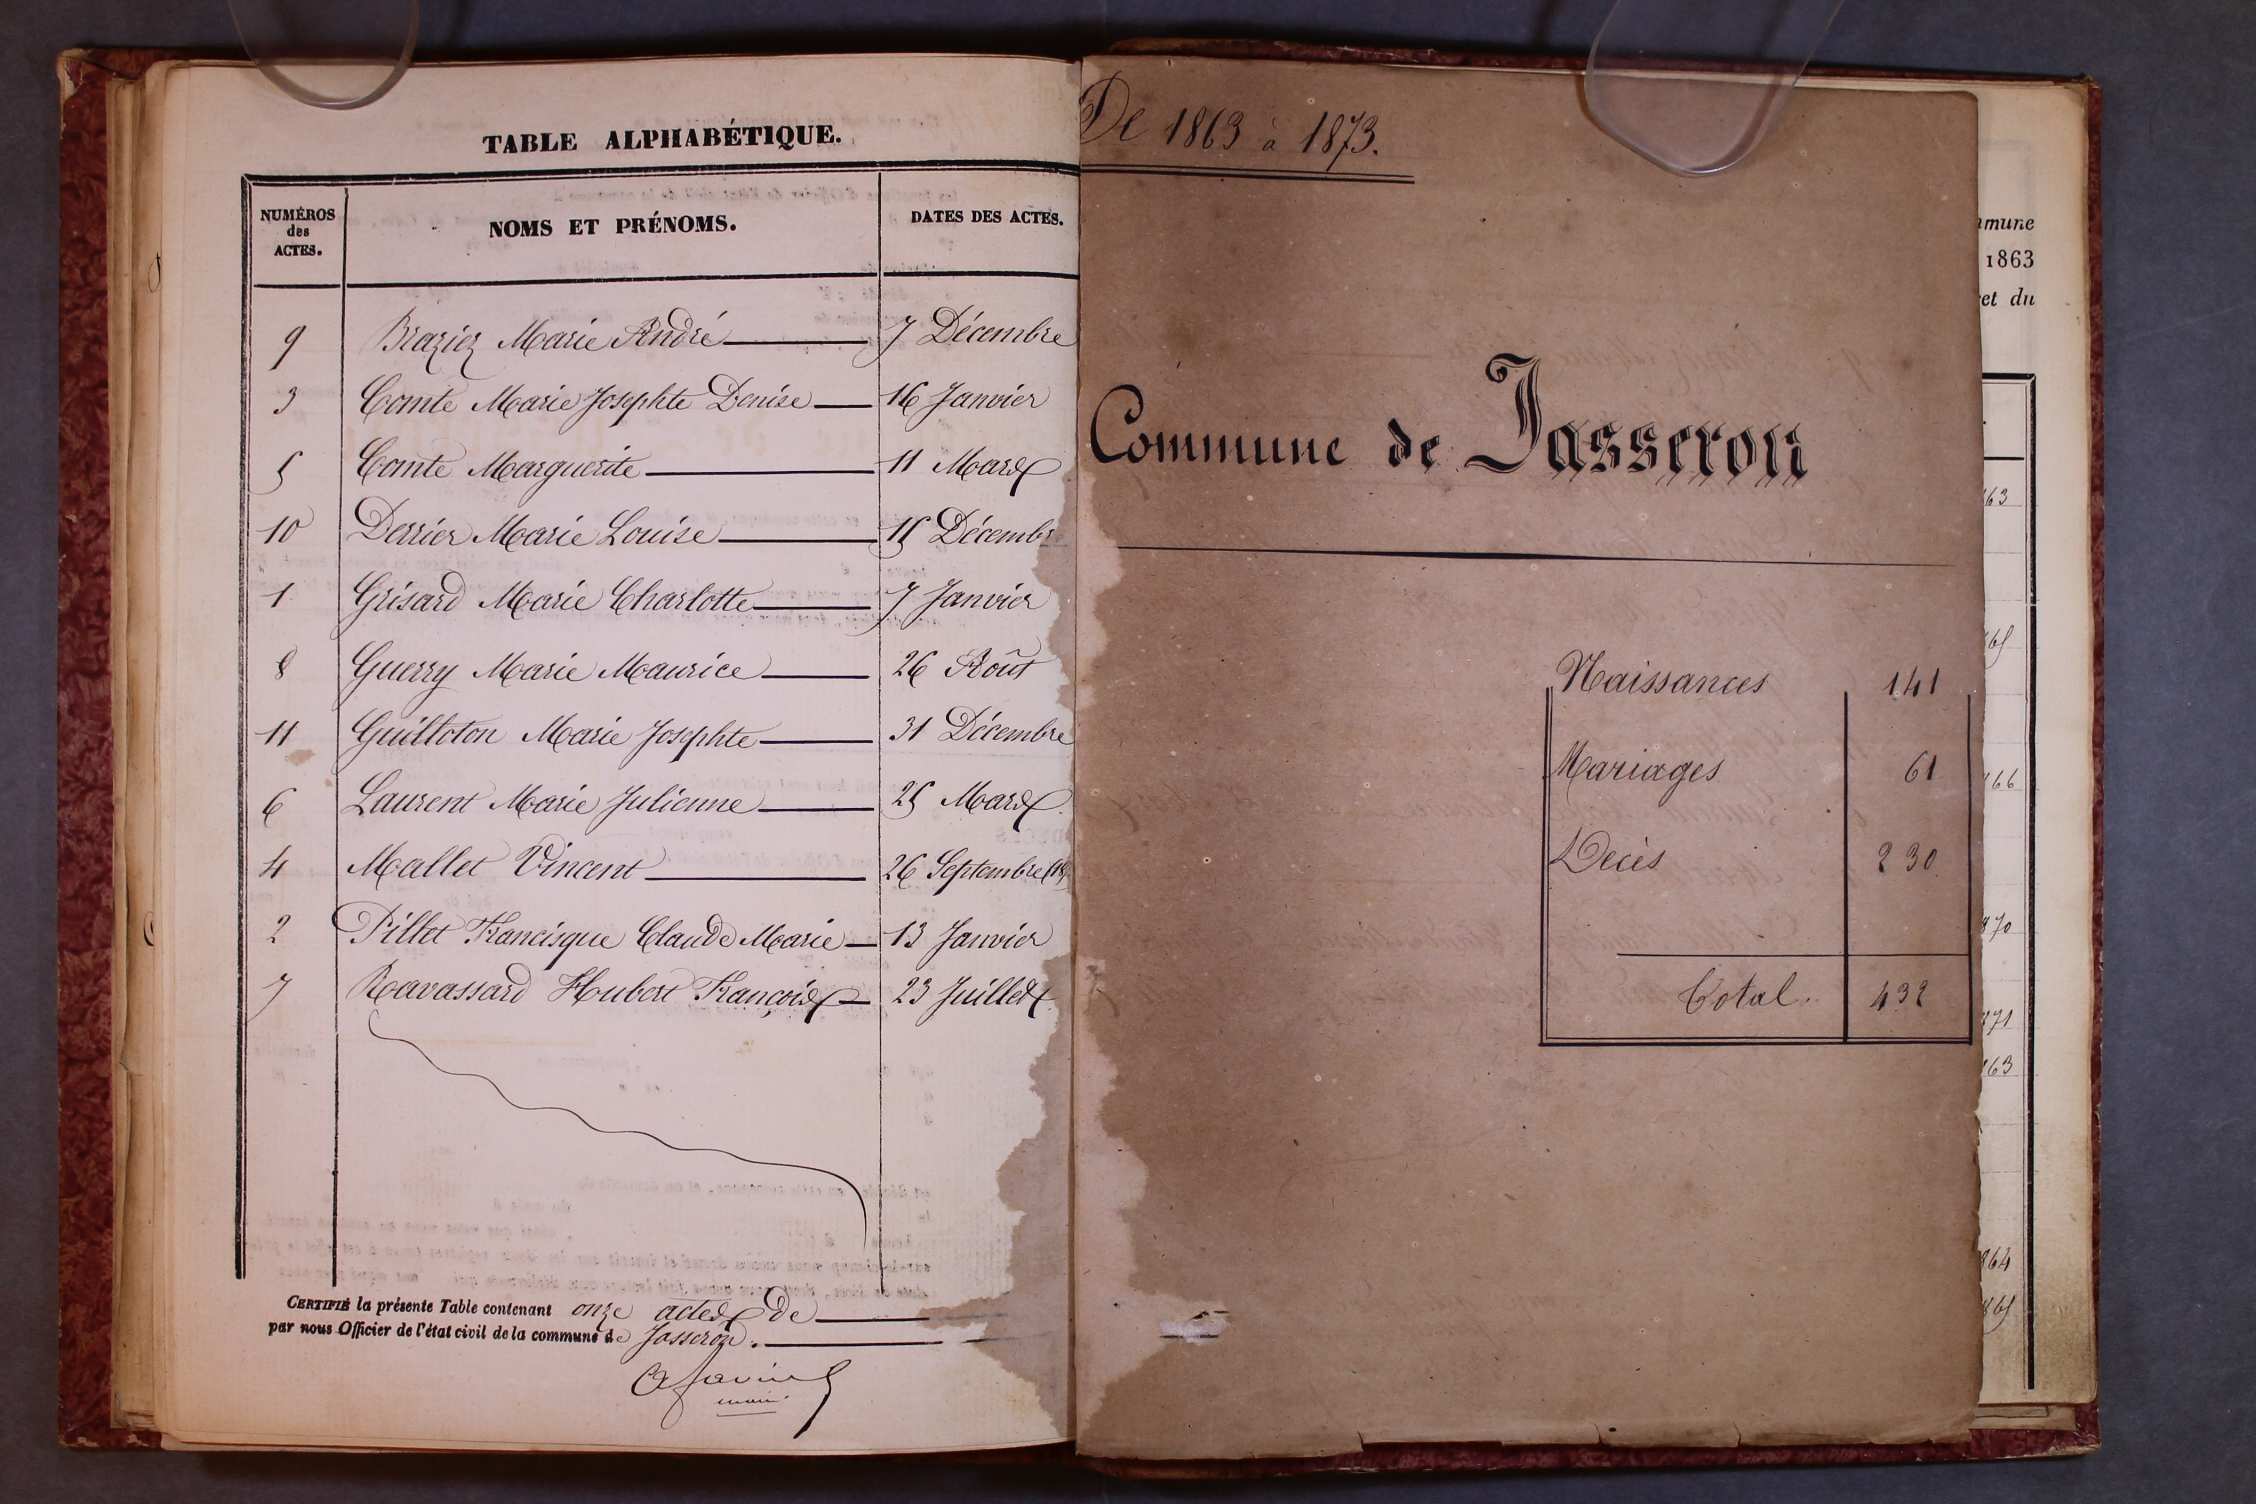 TABLE ALPHABÉTIQUE.
NUMÉROS des ACTES. NOMS ET PRÉNOMS. DATES DES ACTES.
9 Braziez Marie André 7 Décembre
3 Comte Marie Josephte Denise 16 Janvier
5 Comte Marguerite 11 Mars
10 Derrier Marie Louise 15 Décemb
1 Grisard Marie Charlotte 7 Janvier
8 Guerry Marie Maurice 26 Août
11 Guilloton Marie Josephte 31 Décembre
6 Laurent Marie Julienne 25 Mars
4 Mallet Vincent 26 Septembre
2 Pillet Francisque Claude Marie 13 Janvier
7 Ravassard Hubert François 23 Juillet
CERTIFIÉ la présente Table contenant onze actes de
par nous Officier de l'état civil de la commune de Jasseron.
maire
De 1863 à 1873.
Commune de Jasseron
Naissances 141
Mariages 61
Décès 230
Total 432
mmune
1863
et du
63
65
66
870
871
863
864
865